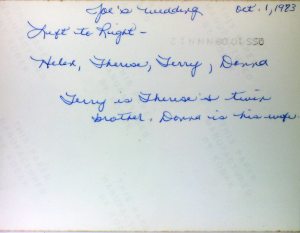 Joe's Wedding Oct. 1, 1983
Left to Right -
Helen, Therese, Terry, Donna
Terry is Therese's twin
brother. Donna is his wife